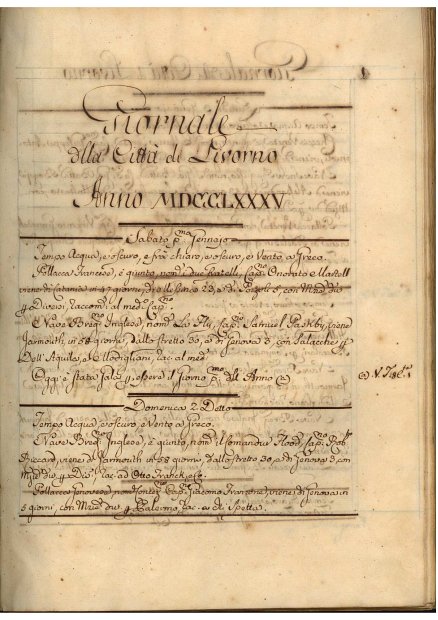 Giornale
della Città di Livorno
Anno MDCCLXXXV
Sabato p.mo Gennajo
Tempo Acqua, e oscuro, e frà chiaro, e oscuro, e Vento a Greco.
Pollacca Francese, è giunto, nom. i due fratelli, Cap.no Onorato
viene di Catania in 47 giorni, di
Diversi, raccom. al med. Cap.no
E Nave Brig. Inglese, nom. La Fly, Cap.no Samuel Pashby, viene
Jarmouth, in 58 giorni, dallo stretto 30, e di Genova 3, con Salacche p.
Dell' Aquila, e Mlodigliani, rac. al med.
Oggi è stata Gala p. essere il Giorno p.mo dell' Anno
Domenica 2. Detto
Tempo Acqua, e oscuro, e Vento a Greco.
E Nave Brig. Inglese, è giunto, nom. il Comandur Hood, Cap.no Rob.
viene di Jarmouth in 58 giorni, dallo stretto 30, e di Genova 3, con
Mrdie div. p. Div. rac. ad Otto Franck, e C.
Pollacca Genovese, nom. Cap.no Giacomo viene di Genova in
5 giorni, con Mrdie div. p. Palermo, rac.